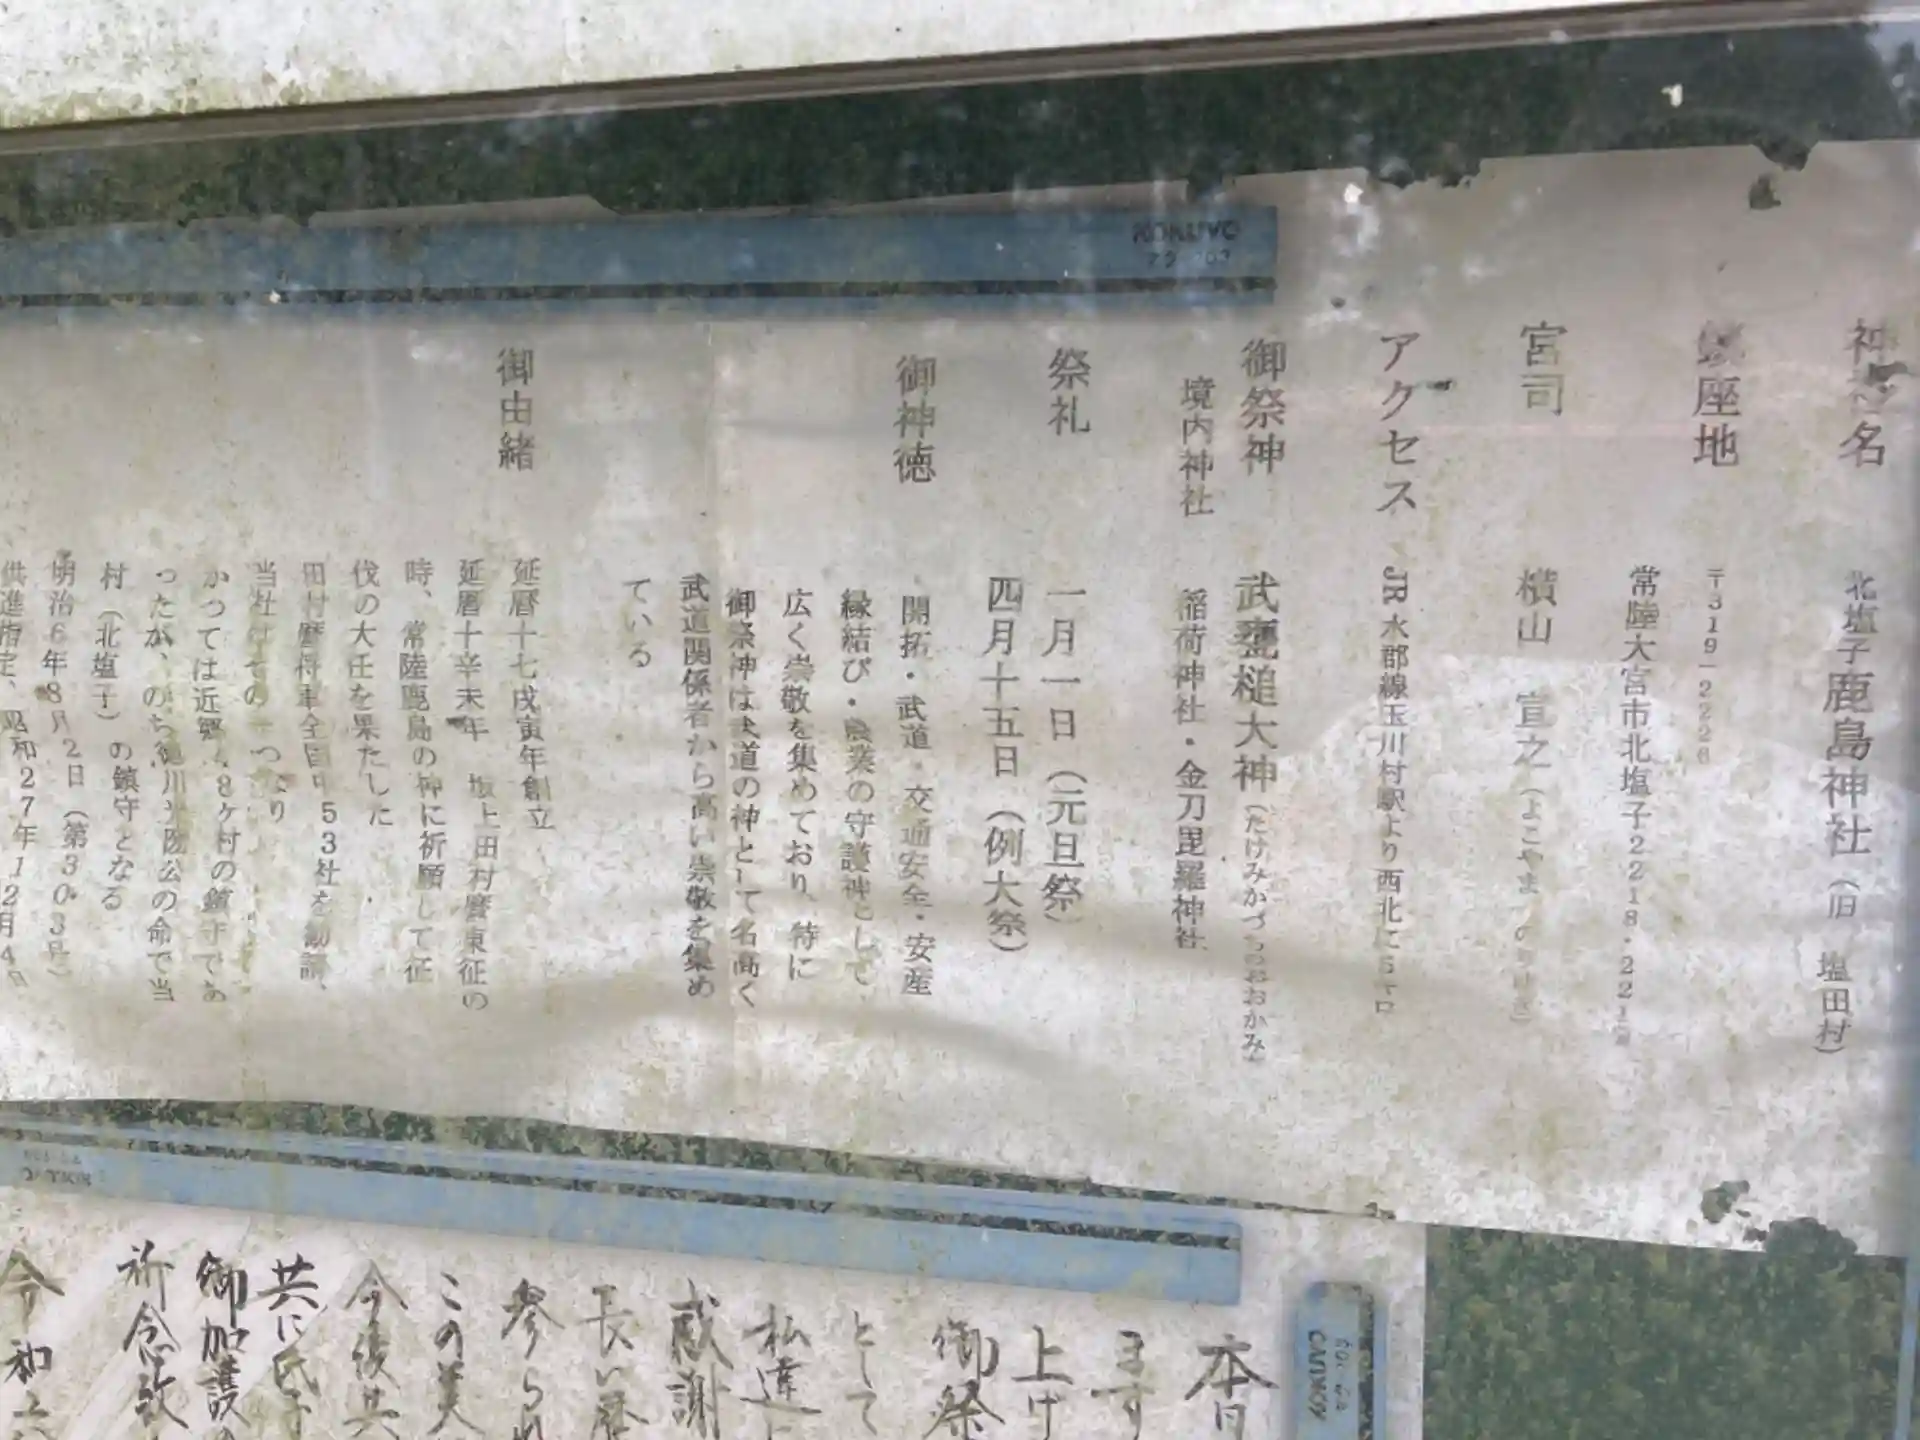 神社名　北塩子鹿島神社（旧　塩田村）
鎮座地　〒319-2226
常陸大宮市北塩子2218・221
宮司　横山　宣之（よこやま　の
アクセス　JR水郡線玉川村駅より西北に5キロ
御祭神　武甕槌大神（たけみかづちおおかみ）
境内神社　稲荷神社・金刀毘羅神社
祭礼　一月一日（元旦祭）
四月十五日（例大祭）
御神徳　開拓・武道・交通安全・安産
縁結び・農業の守護神として、
広く崇敬を集めており、特に
御祭神は武道の神として名高く
武道関係者から高い崇敬を集め
ている
御由緒　延暦十七戊寅年創立
延暦十辛未年　坂上田村麿東征の
時、常陸鹿島の神に祈願して征
伐の大任を果たした
田村麿将軍全国中53社を勧請、
当社はその一つなり
かつては近郷48ヶ村の鎮守であ
ったが、のち徳川光圀公の命で当
村（北塩子）の鎮守となる
明治6年8月2日（第303号）
供進指定、昭和27年12月4日
KOKUYO
本日
ます
上げ
御祭
として
私達
感謝
長い歴
参られ
この美
今後共
共に氏子
御加護の
祈念致
令和